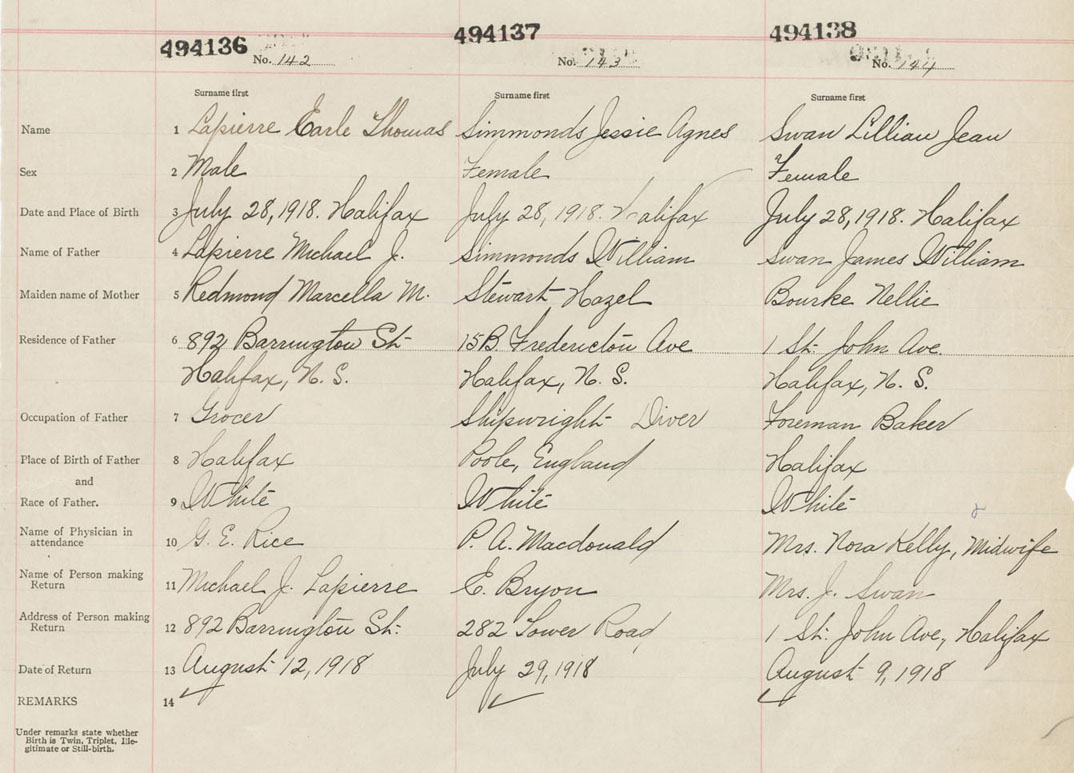 494136 494137 494138
No. 142 No. 143 No. 144
Surname first Surname first Surname first
Name 1 Lapierre Earle Thomas Simmonds Jessie Agnes Swan Lillian Jean
Sex 2 Male Female Female
Date and Place of Birth 3 July 28, 1918. Halifax July 28, 1918. Halifax July 28, 1918. Halifax
Name of Father 4 Lapierre Michael J. Simmonds William Swan James William
Maiden name of Mother 5 Redmond Marcella M. Stewart Hazel Bourke Nellie
Residence of Father 6 892 Barrington St. 15B. Fredericton Ave 1 St. John Ave.
Halifax, N. S. Halifax, N. S. Halifax, N. S.
Occupation of Father 7 Grocer Shipwright Diver Foreman Baker
Place of Birth of Father 8 Halifax Poole, England Halifax
and
Race of Father. 9 White White White
Name of Physician in
attendance 10 G. E. Rice P. A. Macdonald Mrs. Nora Kelly, Midwife
Name of Person making
Return 11 Michael J. Lapierre E. Bryon Mrs. J. Swan
Address of Person making
Return 12 892 Barrington St. 282 Tower Road 1 St. John Ave, Halifax
Date of Return 13 August 12, 1918 July 29, 1918 August 9, 1918
REMARKS 14
Under remarks state whether
Birth is Twin, Triplet, Ille-
gitimate or Still-birth.